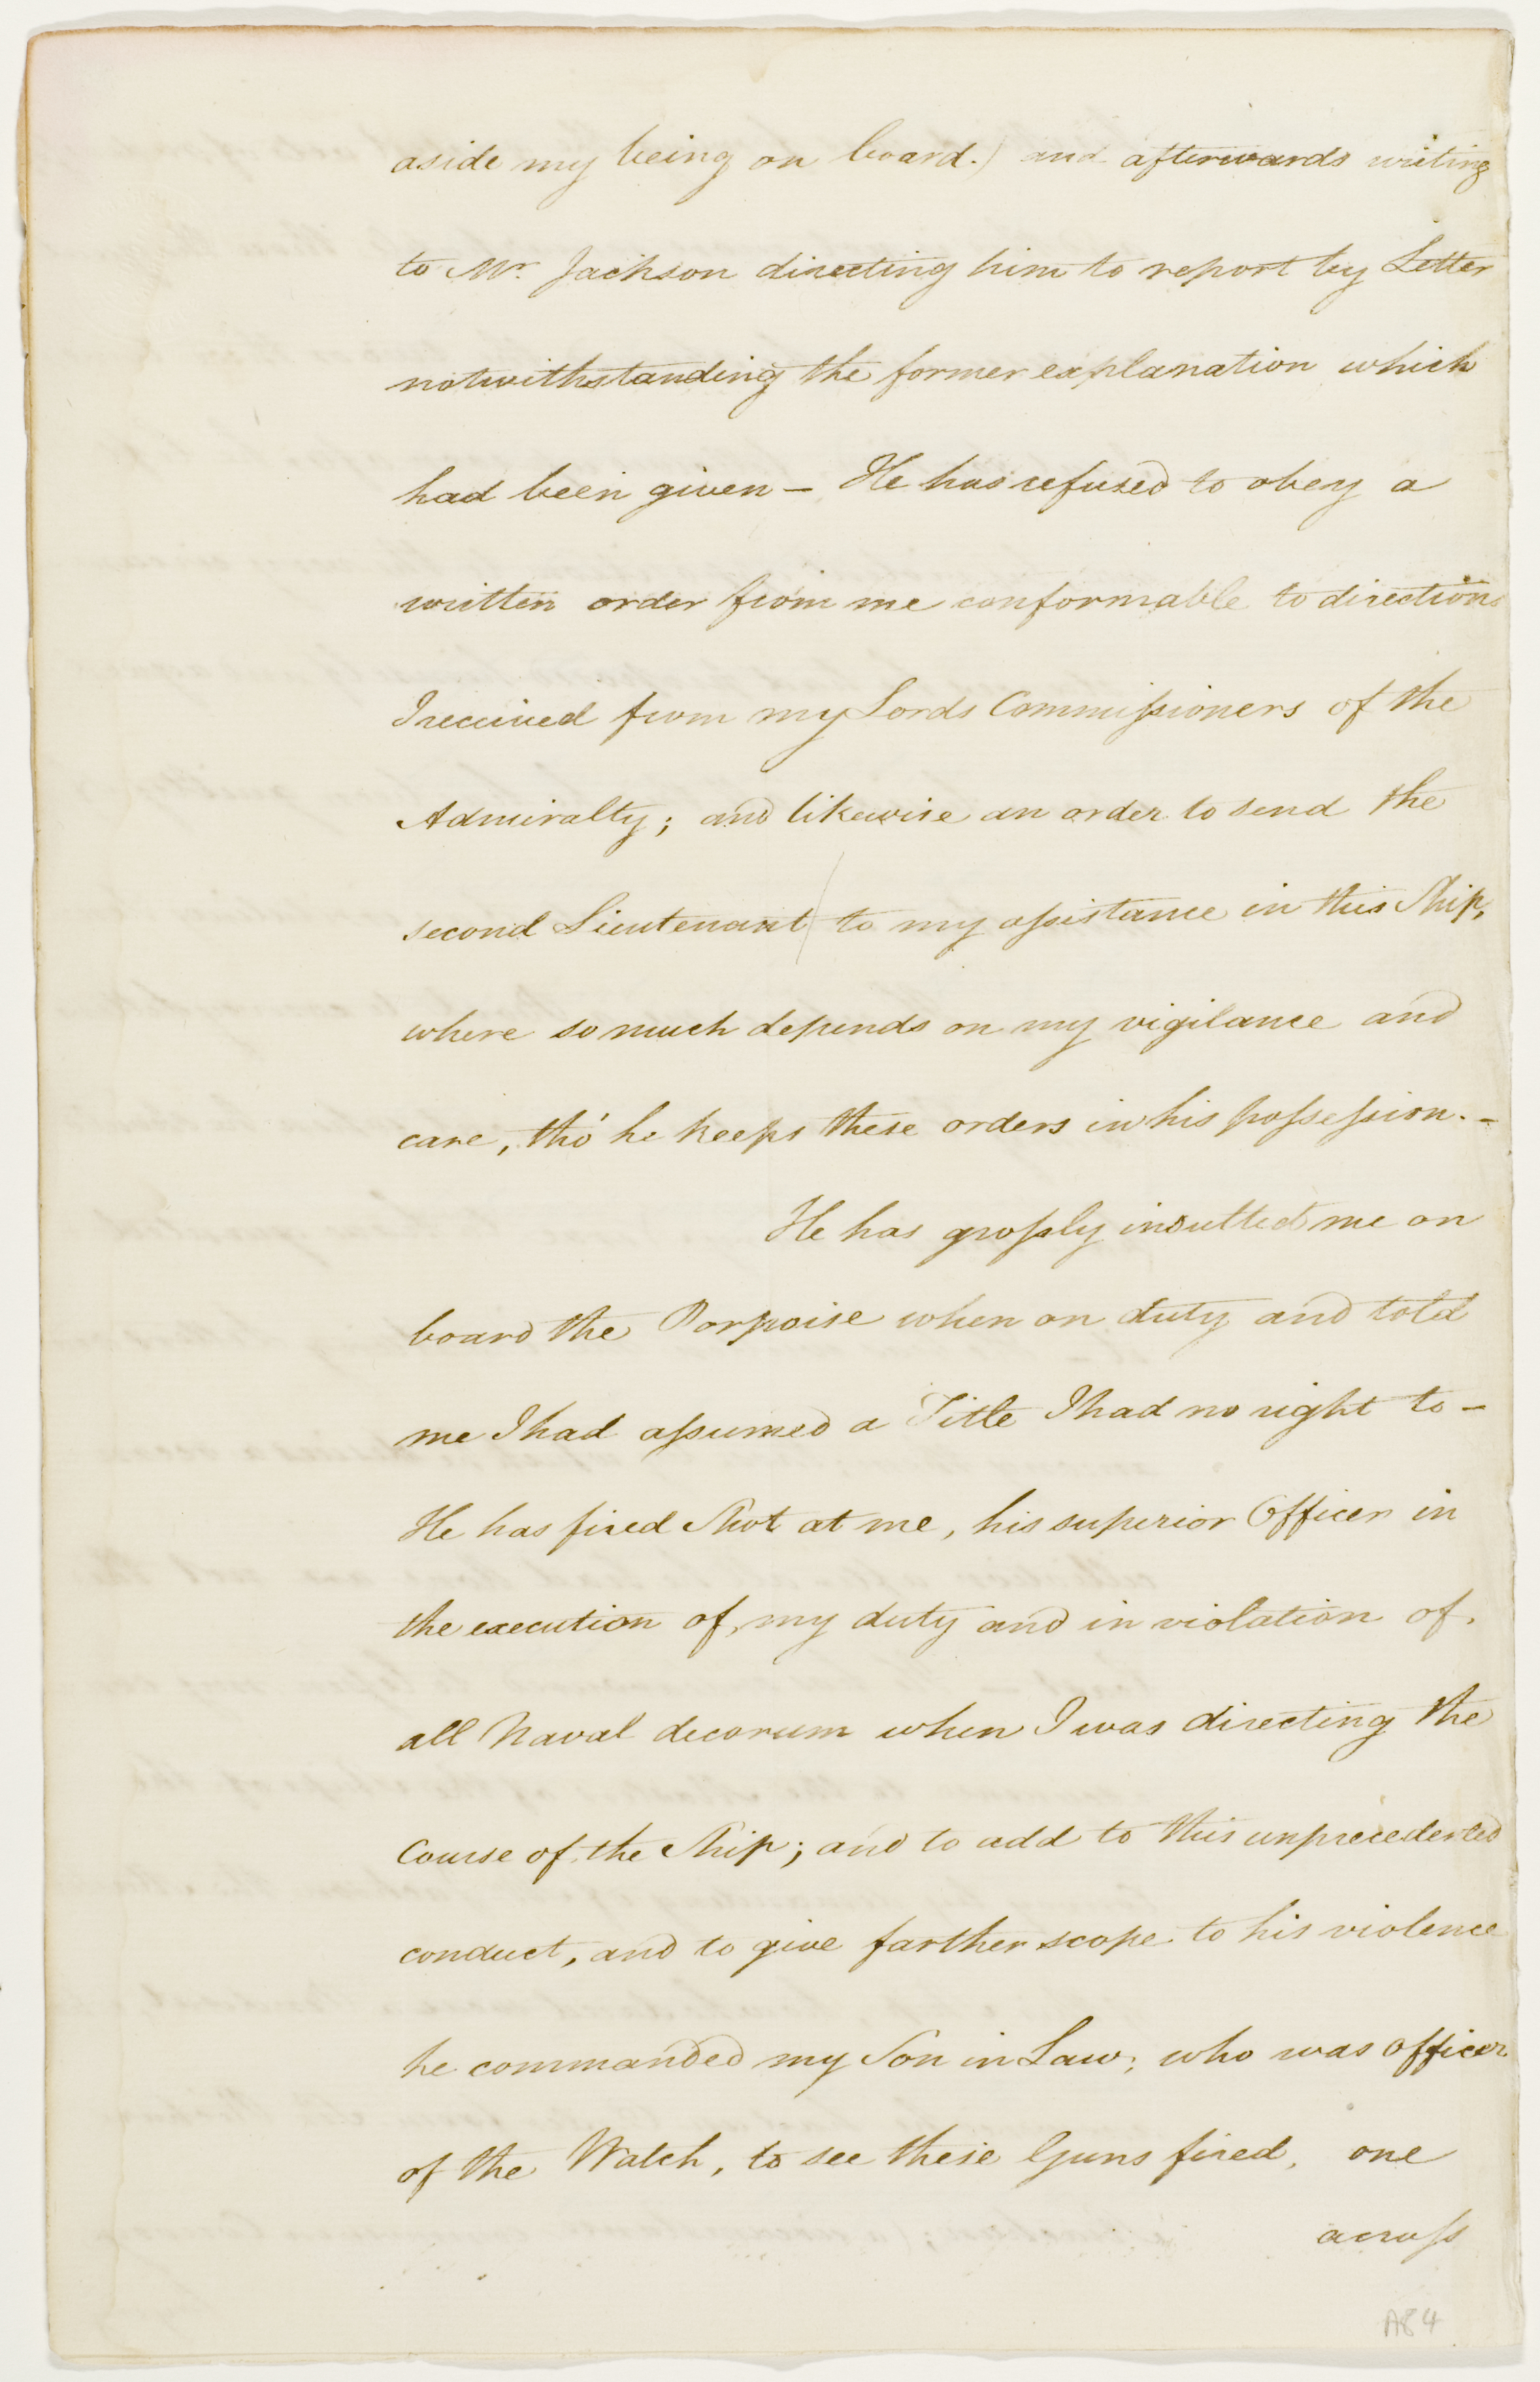 aside my being on board.) and afterwards writing
to Mr. Jackson directing him to report by Letter
notwithstanding the former explanation which
had been given - He has refused to obey a
written order from me conformable to directions
I received from my Lords Commissioners of the
Admiralty; and likewise an order to send the
second Lieutenant to my assistance in this Ship,
where so much depends on my vigilance and
care, tho' he keeps these orders in his possession. -
He has grossly insulted me on
board the Porpoise when on duty and told
me I had assumed a Title I had no right to -
He has fired Shot at me, his superior Officer in
the execution of, my duty and in violation of,
all Naval decorum when I was directing the
Course of the Ship; and to add to this unprecedented
conduct, and to give farther scope to his violence
he commanded my Son in Law; who was officer
of the Watch, to see these Guns fired, one
across
A84